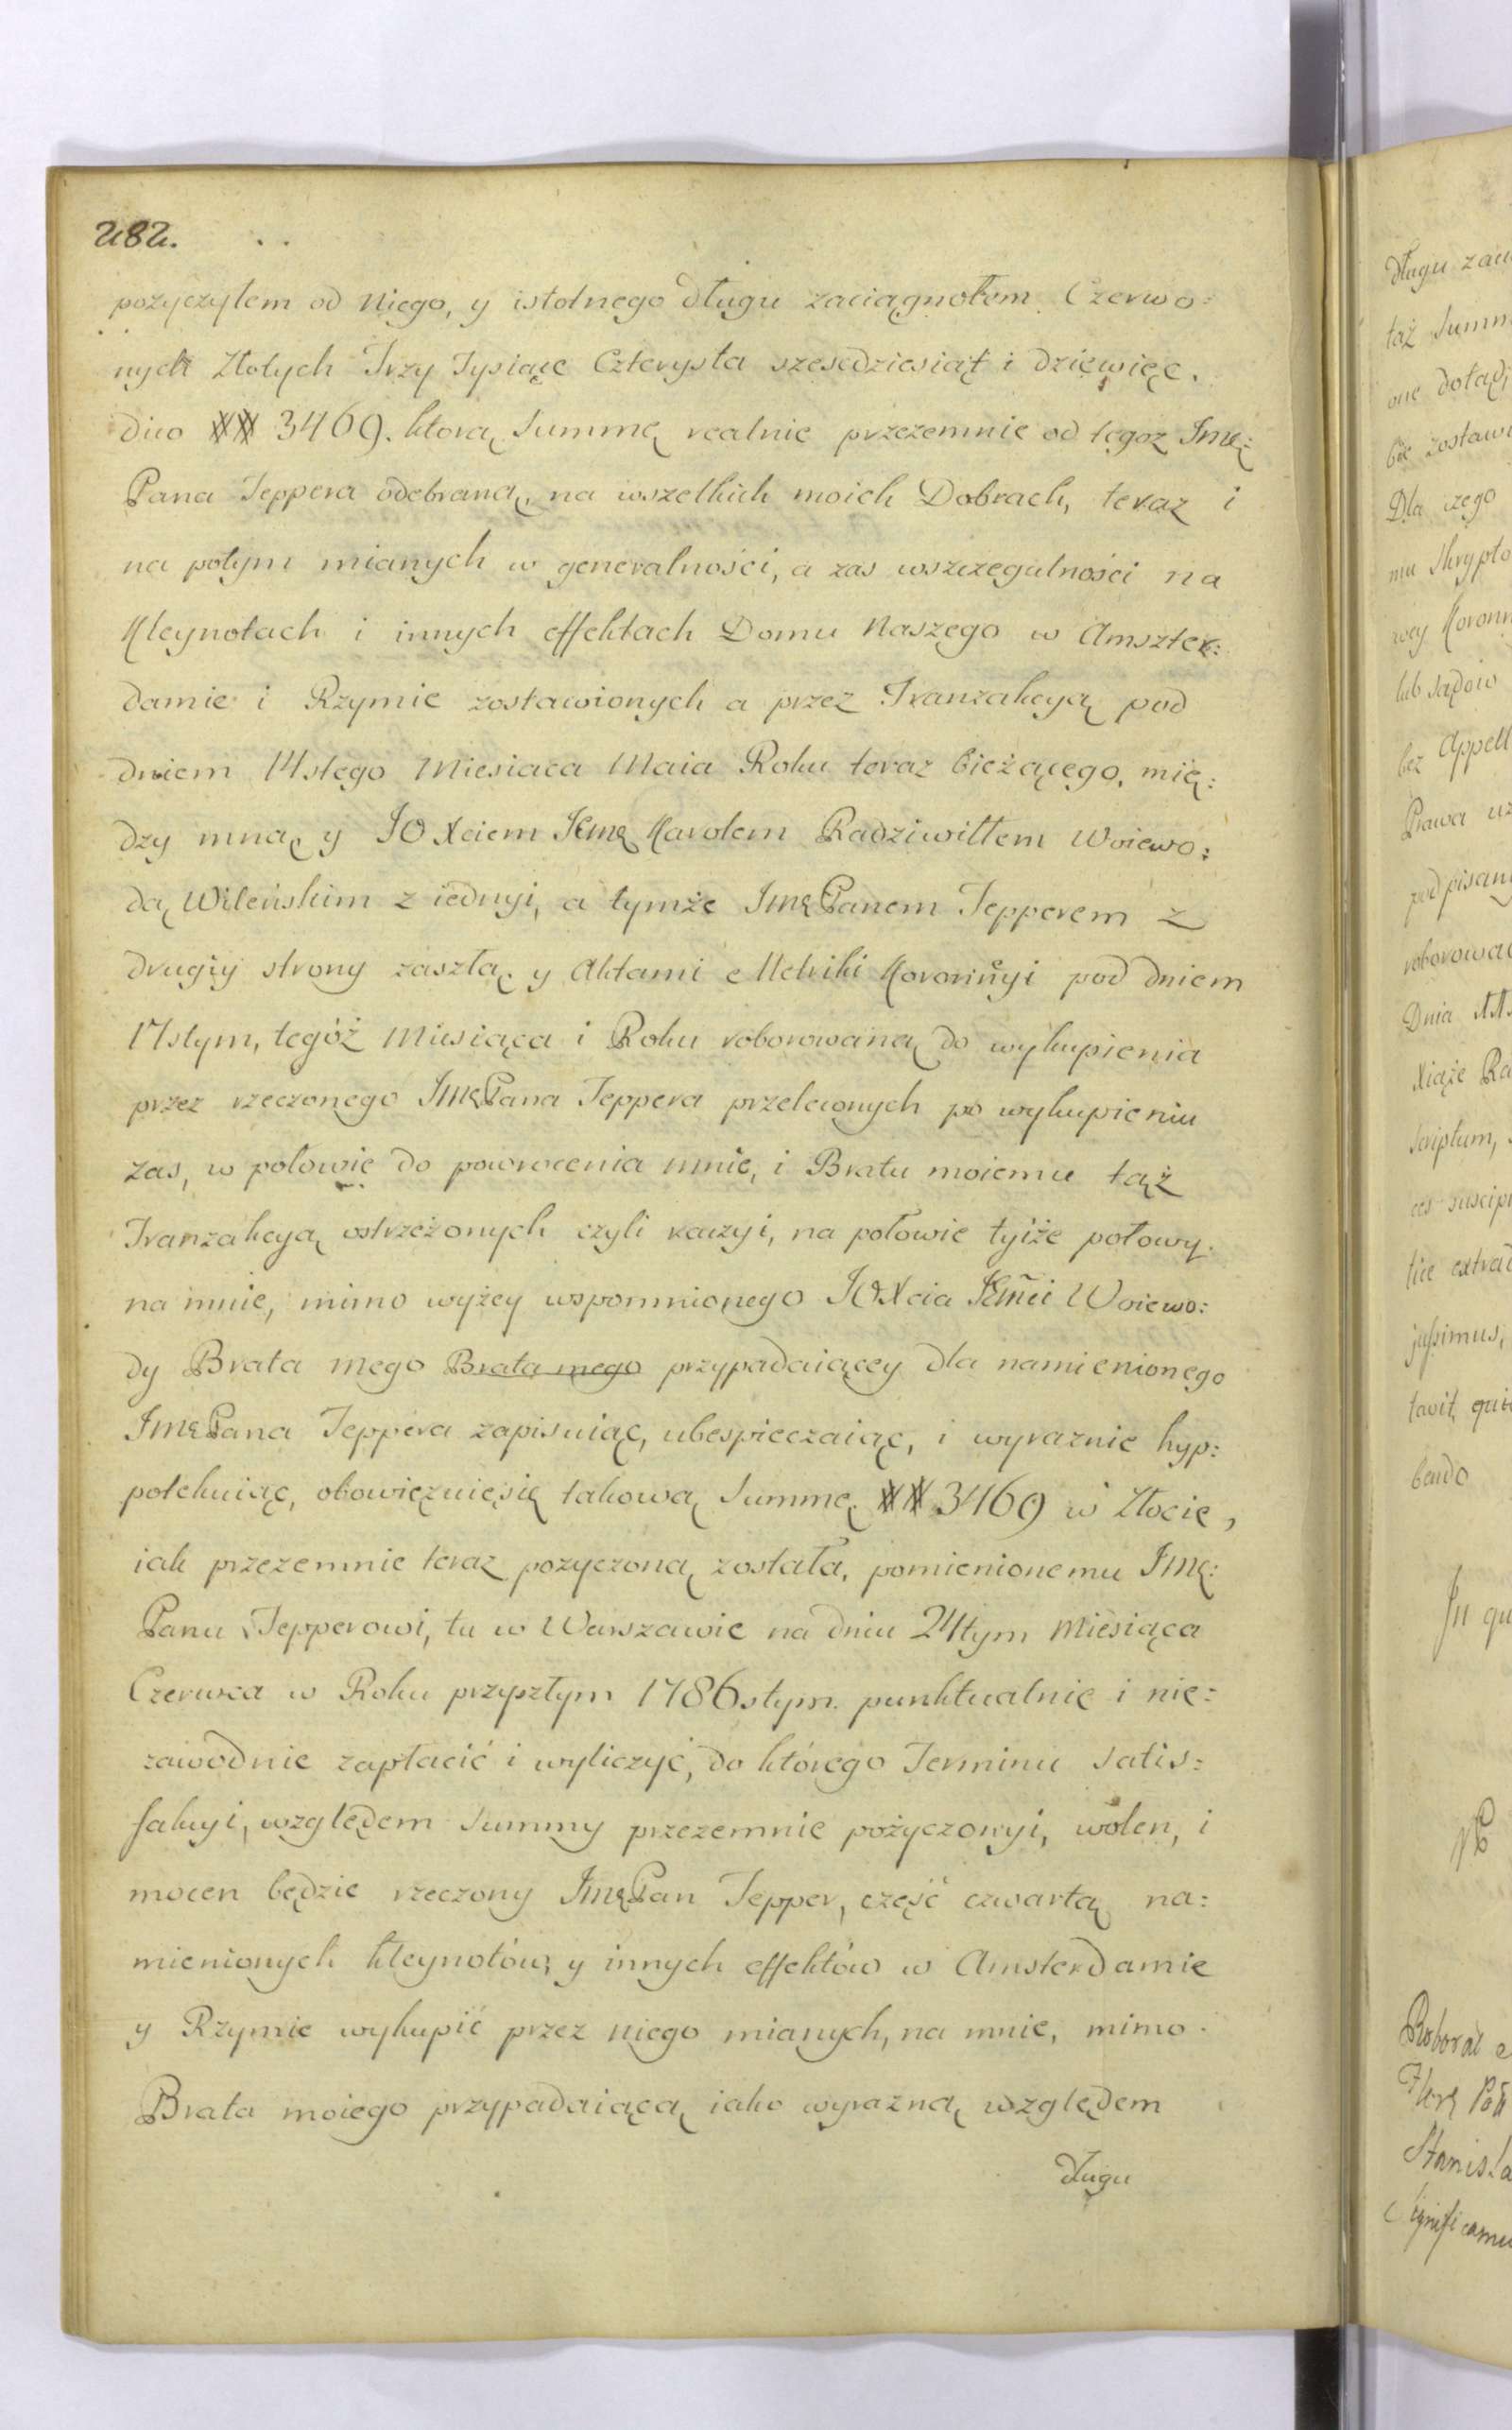 282.
pozyczylem od Niego, y istotnego długu zaciągnołem Czerwo=
nych Złotych Trzy Tysiące Czterysta szescdziesiąt i dziewięc.
dico ## 3469. ktorą Summę realnie przezemnie od tegoz Jmę:
Pana Teppera odebraną, na wszelkich moich Dobrach, teraz i
na potym mianych w generalności, a zas wszczegulności na
Kleynotach i innych effektach Domu Naszego w Amszter:
damie i Rzymie zostawionych a przez Tranzakcyą pod
dniem 14stego Miesiaca Maia Roku teraz bieżącego, mię:
dzy mną y JO Xciem Jmę Karolem Radziwiłłem Woiewo:
dą Wileńskim z iednyi, a tymże JmęPanem Tepperem z
drugiy strony zaszłą y Aktami Metriki Koronnyi pod dniem
17stym, tegóż Miesiąca i Roku roborowaną do wykupienia
przez rzeczonego JmęPana Teppera przeleconych po wykupieniu
zas, w połowie do powrocenia mnie, i Bratu moiemu tąż
Tranzakcyą ostrzeżonych czyli raczyi, na połowie tyiże połowy
na mnie, mimo wyżey wspomnionego JOXcia Jmći Woiewo:
dy Brata mego Brata mego przypadaiącey dla namienionego
JmęPana Teppera zapisuiąc, ubespieczaiąc, i wyraznie hyp:
potekuiąc, obowięzuięsię takową Summę ## 3469 w Złocie,
iak przezemnie teraz pozyczoną została, pomienionemu Jmę:
Panu Tepperowi, tu w Warszawie na dniu 24tym Miesiąca
Czerwca w Roku przyszłym 1786stym punktualnie i nie=
zawodnie zapłacić i wyliczyć, do którego Terminu satis=
fakcyi, względem Summy przezemnie pożyczonyi, wolen, i
mocen będzie rzeczony JmęPan Tepper, częsć czwartą na:
mienionych kleynotów, y innych effektów w Amsterdamie
y Rzymie wykupić przez niego mianych, na mnie, mimo
Brata moiego przypadaiącą iako wyrazną względem
długu